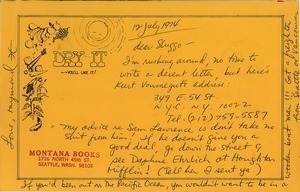 12 July 1974
DRY IT
—YOU'LL LIKE IT!
dear Shuggo —
I'm rushing around, no time to
write a decent letter, but here's
Kurt Vonnegut's address:
349 E. 54 St
N.Y.C. N.Y. 10022
Tel: (212) 759-5587
my advice re Sam Lawrence is don't take no
shit from him! If he doesn't give you a
good deal, go down the street &
see Daphne Ehrlich at Houghton
Mifflin! (Tell her I sent ya)
MONTANA BOOKS
1716 NORTH 45th ST.
SEATTLE, WASH. 98103
If you'd been out on the Pacific Ocean, you wouldn't want to be in a
wooden boat me!!! Got a freighter
from Seattle or Vancouver
Love Raymond